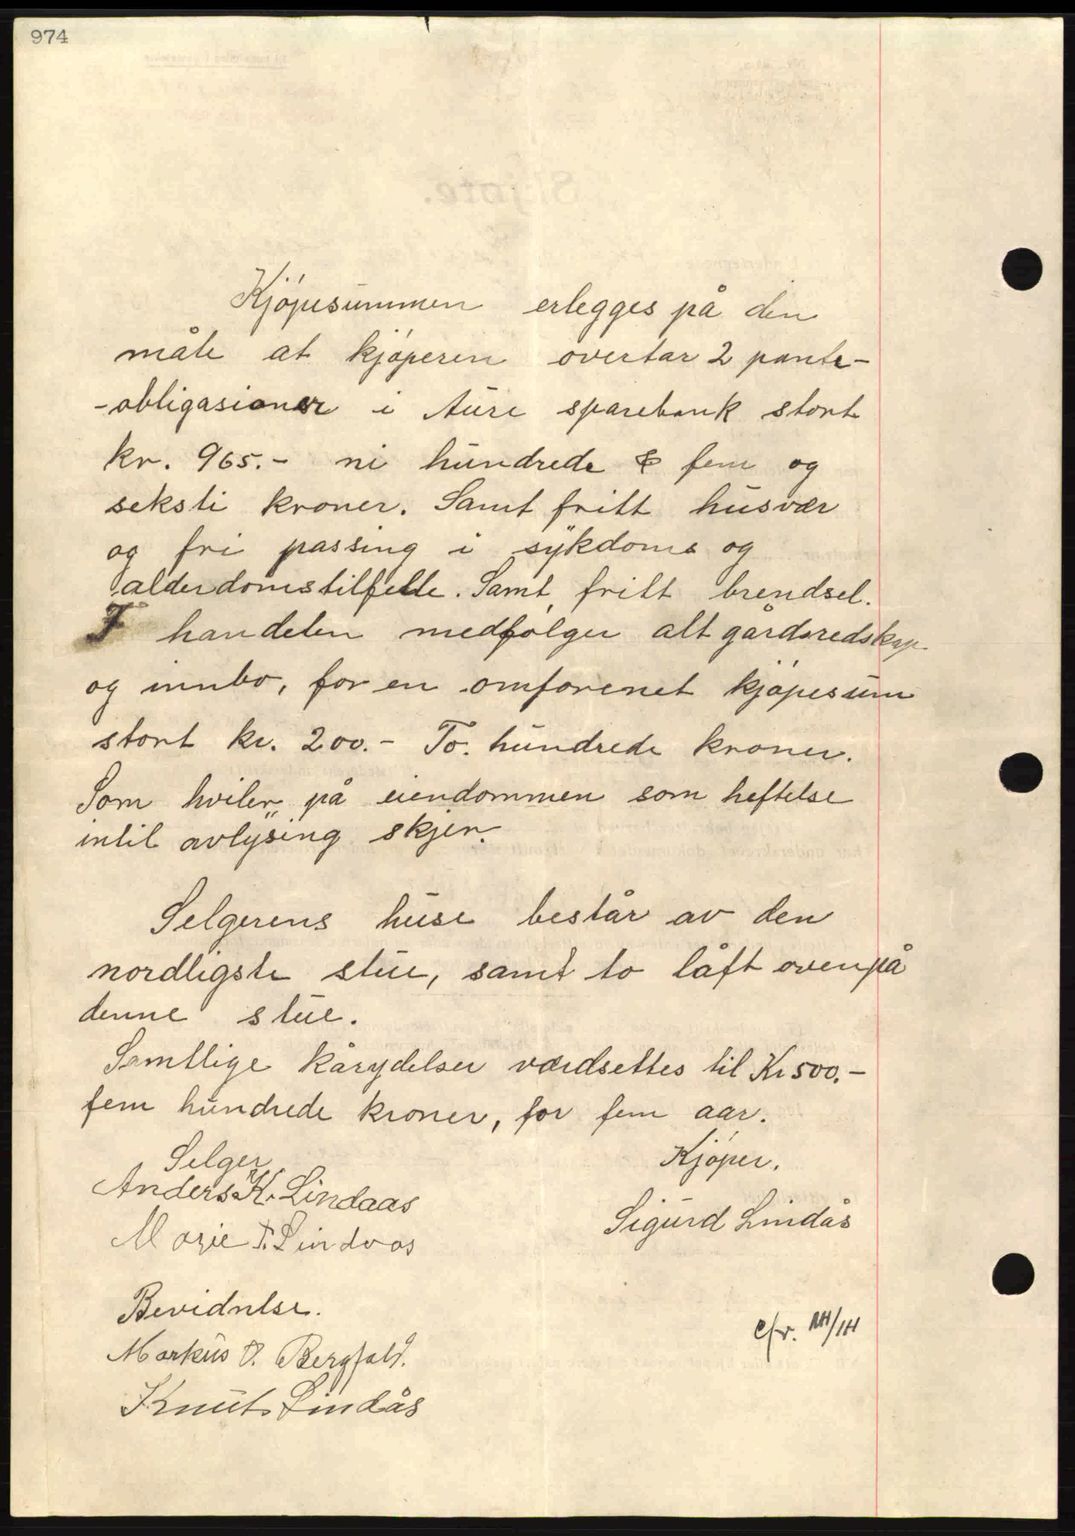 974
Kjøpesummen erlegges på den
måte at kjøperen overtar 2 pante-
-obligasioner i Aure sparebank stort
kr. 965.- ni hundrede & fem og
seksti kroner. Samt fritt husvær
og fri passing i sykdoms og
alderdomstilfelle. Samt fritt brendsel.
I handelen medfølger alt gårdsredskap
og innbo, for en omforenet kjøpesum
stort kr. 200.- To. hundrede kroner.
Som hviler på eiendommen som heftelse
intil avlysing skjer.
Selgerens huse består av den
nordligste stue, samt to låft ovenpå
denne stue.
Samtlige kårydelser værdsettes til Kr 500.-
fem hundrede kroner, for fem aar.
Selger
Kjøper.
Anders K. Lindaas
Sigurd Lindås
Marie T. Lindaas
Bevidnelse.
c/r. AH/IH
Markus O. Bergfald.
Knut Lindås